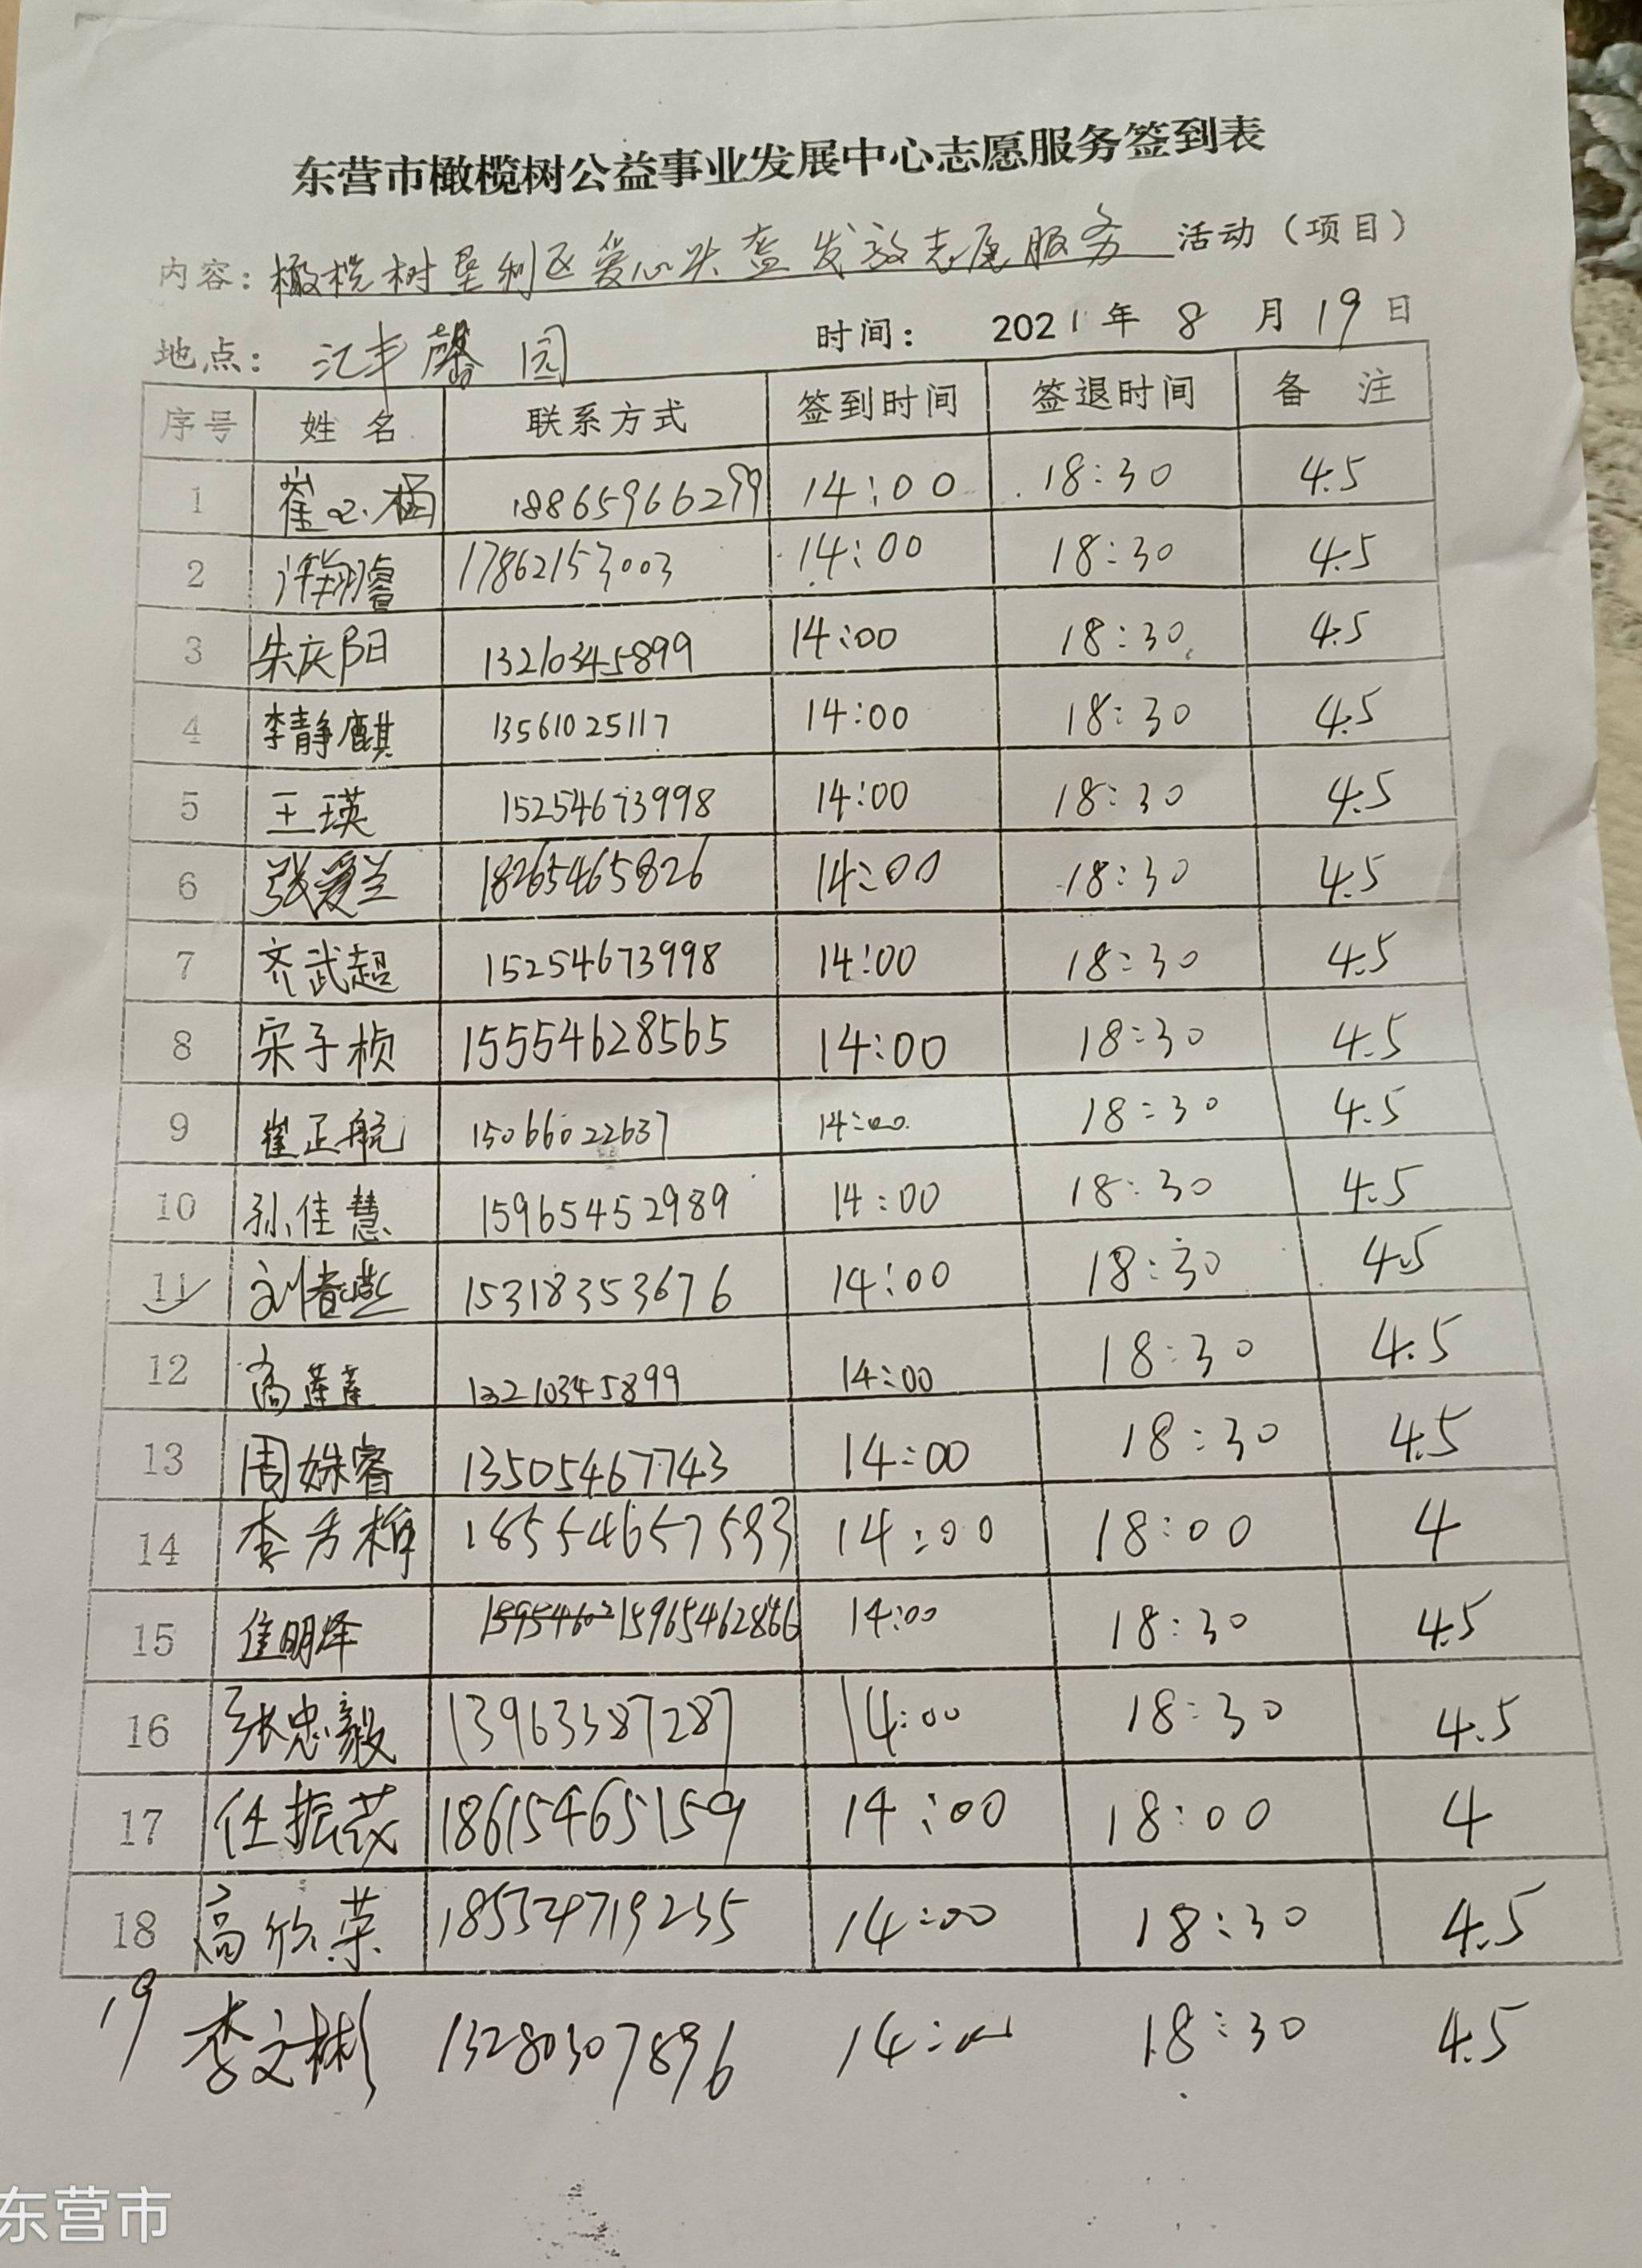 东营市橄榄树公益事业发展中心志愿服务签到表
内容：橄榄树垦利区爱心头盔发放志愿服务 活动（项目）
地点： 汇丰馨园 时间： 2021年 8 月 19 日
序号 姓名 联系方式 签到时间 签退时间 备 注
1 崔 18865966299 14:00 18:30 4.5
2 许翔睿 17862153003 14:00 18:30 4.5
3 朱庆阳 13210345899 14:00 18:30 4.5
4 李静麒 13561025117 14:00 18:30 4.5
5 王瑛 15254673998 14:00 18:30 4.5
6 张爱兰 18265465826 14:00 18:30 4.5
7 齐武超 15254673998 14:00 18:30 4.5
8 宋子桢 15554628565 14:00 18:30 4.5
9 崔正航 15066022637 14:00 18:30 4.5
10 孙佳慧 15965452989 14:00 18:30 4.5
11 刘春燕 15318353676 14:00 18:30 4.5
12 高莲莲 13210345899 14:00 18:30 4.5
13 周姝睿 13505467743 14:00 18:30 4.5
14 李 18554657593 14:00 18:00 4
15 崔明泽 15965462866 14:00 18:30 4.5
16 张忠毅 13963387287 14:00 18:30 4.5
17 任振茂 18615465159 14:00 18:00 4
18 高欣荣 14:00 18:30 4.5
19 李文彬 13280307896 14:00 18:30 4.5
东营市